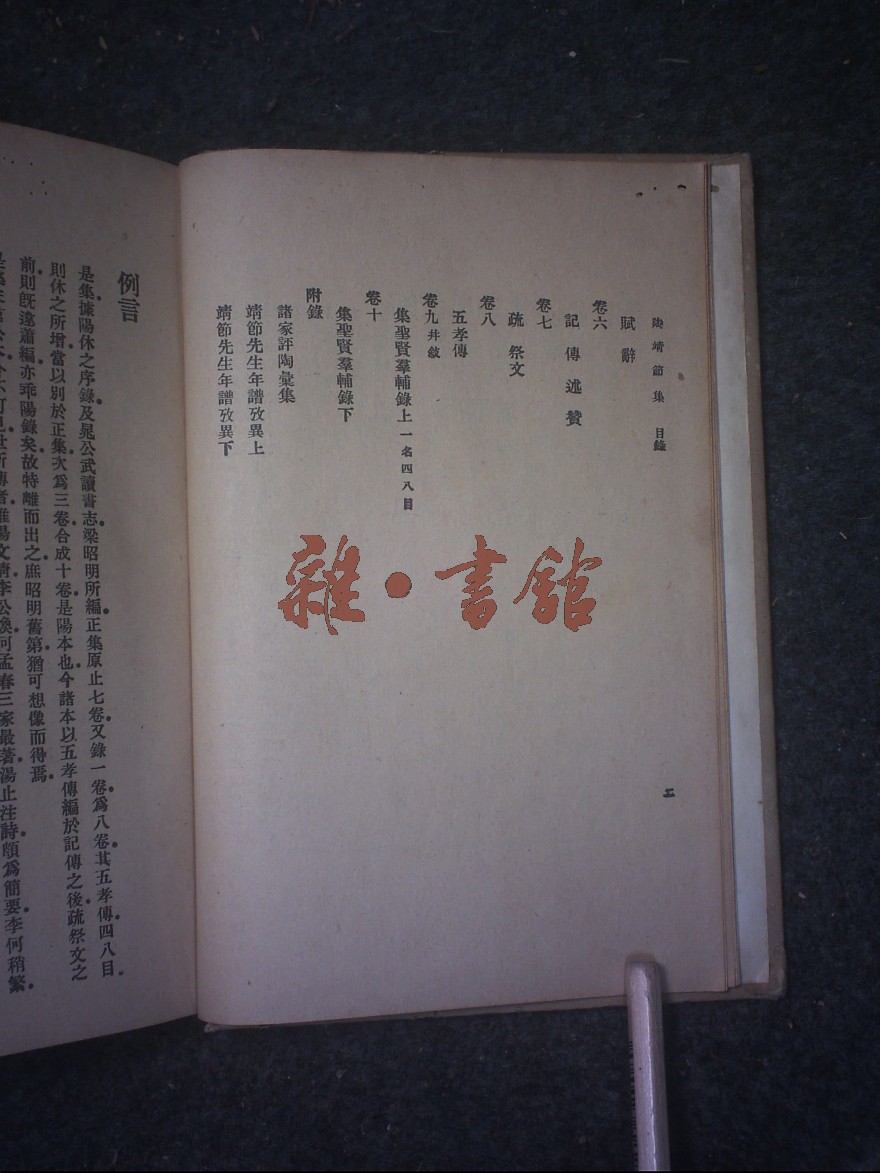 陶靖節集 目錄
賦辭
卷六
記傳述贊
卷七
疏祭文
卷八
五孝傳
卷九并敘
集聖賢羣輔錄上一名四八目
卷十
集聖賢羣輔錄下
附錄
諸家評陶彙集
靖節先生年譜攷異上
靖節先生年譜攷異下
二
雜•書館
例言
是集據陽休之序錄及晁公武讀書志梁昭明所編正集原止七卷又錄一卷爲八卷其五孝傳四八目
則休之所增當以別於正集次爲三卷合成十卷是陽本也今諸本以五孝傳編於記傳之後疏祭文之
前則旣違蕭編亦乖陽錄矣故特離而出之庶昭明舊第猶可想像而得焉
世所傳者惟湯文淸李公煥何孟春三家最著湯止注詩頗爲簡要李何稍繁